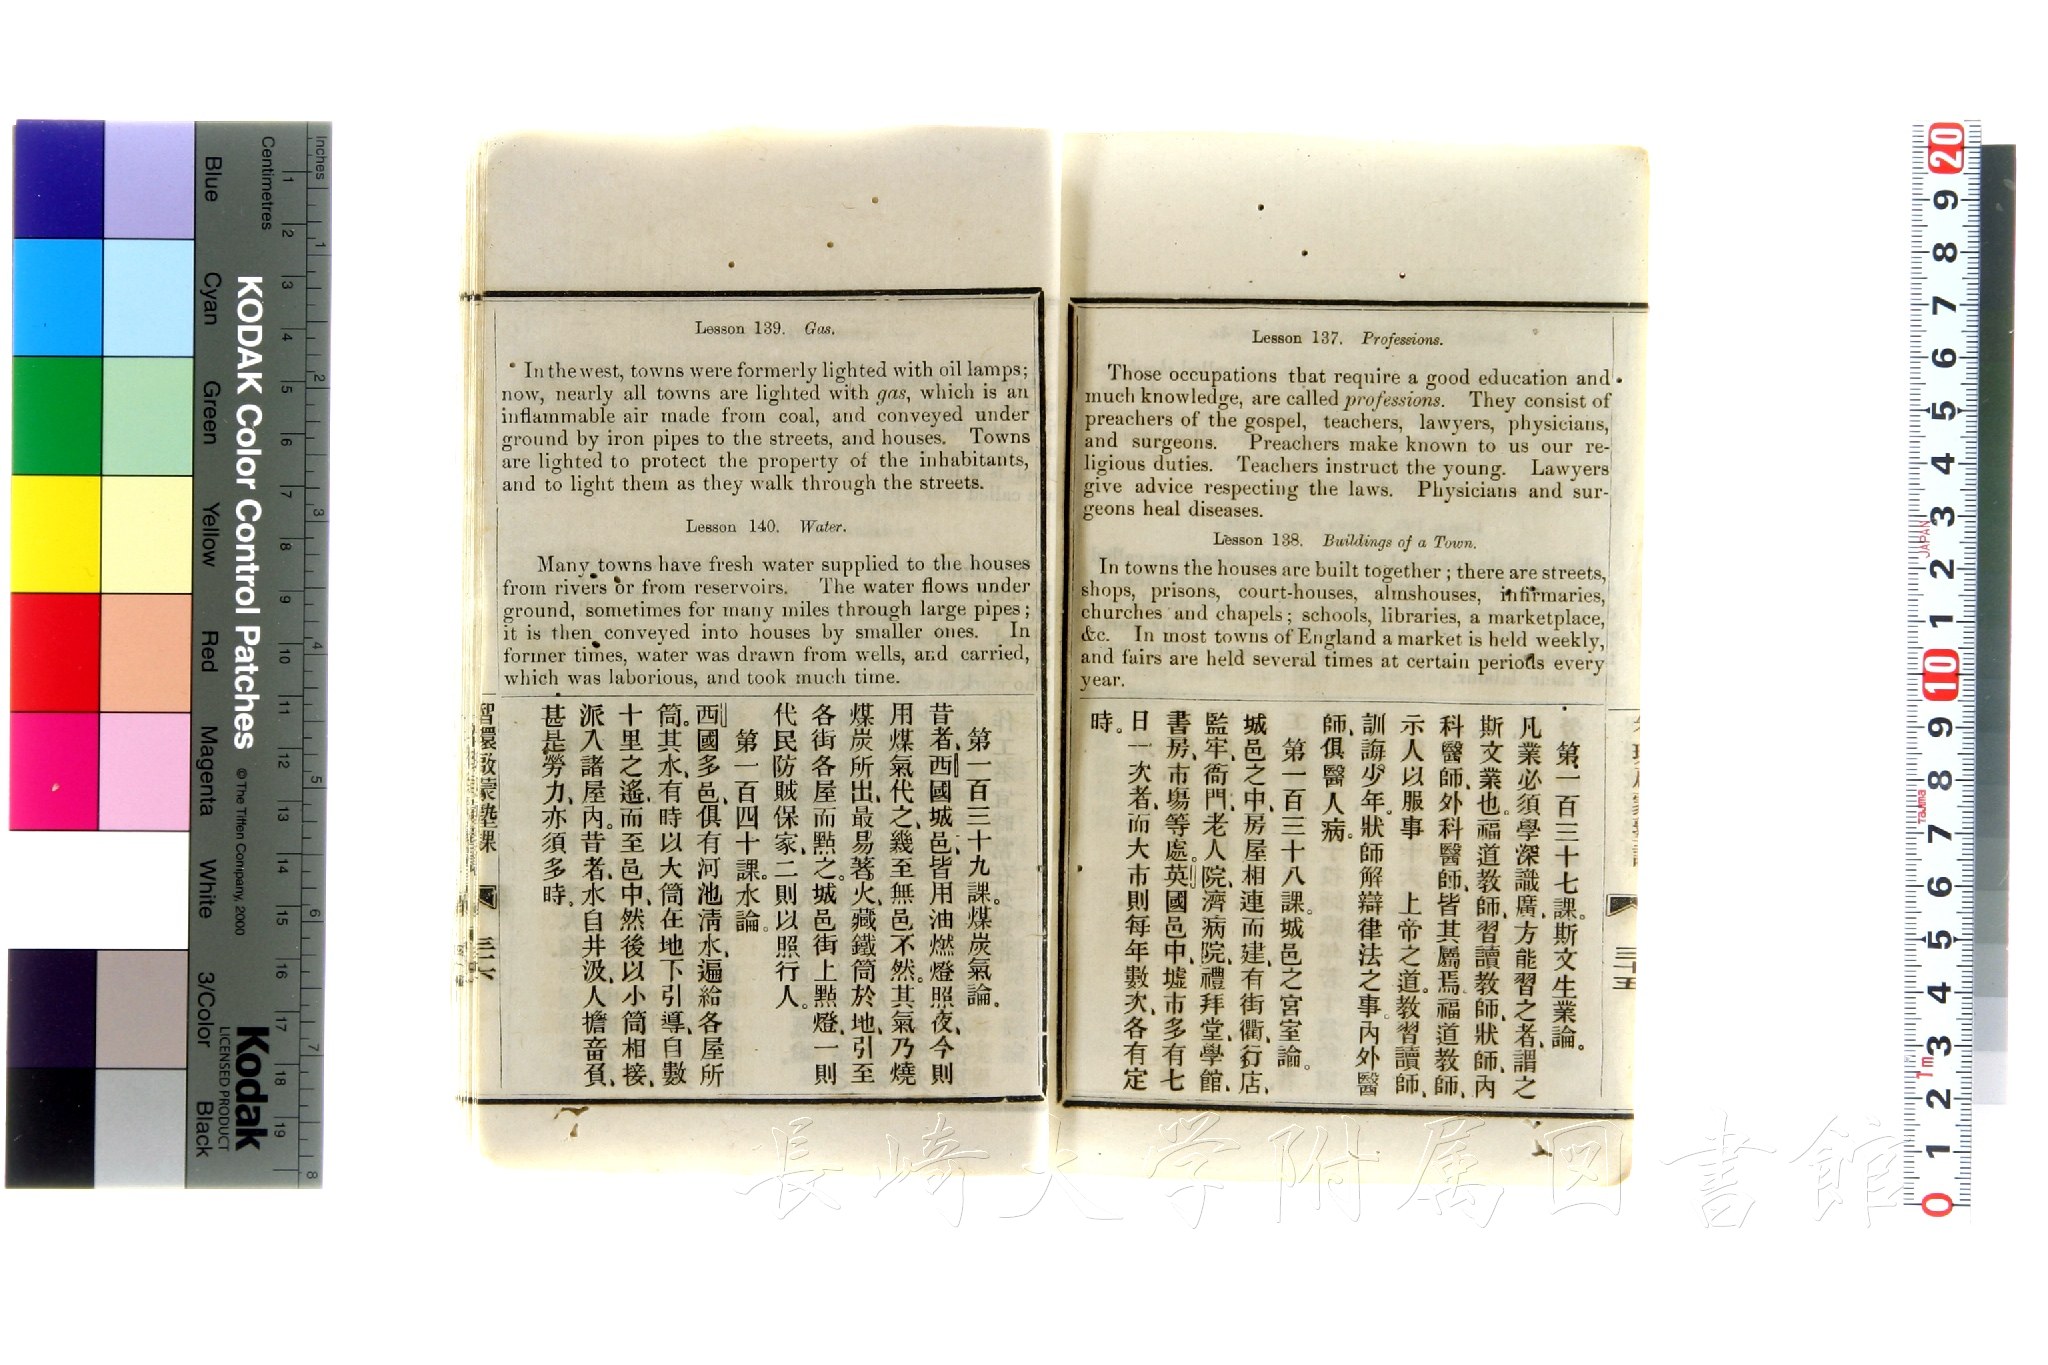 Lesson 137. Professions.
Those occupations that require a good education and
much knowledge, are called professions. They consist of
preachers of the gospel, teachers, lawyers, physicians,
and surgeons. Preachers make known to us our re-
ligious duties. Teachers instruct the young. Lawyers
give advice respecting the laws. Physicians and sur-
geons heal diseases.
Lesson 138. Buildings of a Town.
In towns the houses are built together; there are streets,
shops, prisons, court-houses, almshouses, infirmaries,
churches and chapels; schools, libraries, a marketplace,
&c. In most towns of England a market is held weekly,
and fairs are held several times at certain periods every
year.
第一百三十七課。斯文生業論。
凡業必須學深識廣、方能習之者、謂之
斯文業也。福道教師、習讀教師、狀師、內
科醫師、外科醫師、皆其屬焉。福道教師、
示人以服事 上帝之道。教習讀師、
訓誨少年。狀師解辯律法之事。內外醫
師、俱醫人病。
第一百三十八課。城邑之宮室論。
城邑之中、房屋相連而建、有街衢、行店、
監牢、衙門、老人院、濟病院、禮拜堂、學館、
書房、市塲等處。英國邑中、墟市多有七
日一次者、而大市則每年數次、各有定
時。
三十五
Lesson 139. Gas.
In the west, towns were formerly lighted with oil lamps;
now, nearly all towns are lighted with gas, which is an
inflammable air made from coal, and conveyed under
ground by iron pipes to the streets, and houses. Towns
are lighted to protect the property of the inhabitants,
and to light them as they walk through the streets.
Lesson 140. Water.
Many towns have fresh water supplied to the houses
from rivers or from reservoirs. The water flows under
ground, sometimes for many miles through large pipes;
it is then conveyed into houses by smaller ones. In
former times, water was drawn from wells, and carried,
which was laborious, and took much time.
第一百三十九課。煤炭氣論。
昔者、西國城邑、皆用油燃燈照夜、今則
用煤氣代之、幾至無邑不然。其氣乃燒
煤炭所出、最易著火、藏鐵筒於地、引至
各街各屋而點之。城邑街上點燈、一則
代民防賊保家、二則以照行人。
第一百四十課。水論。
西國多邑、俱有河池清水、遍給各屋所
筒。其水、有時以大筒在地下引導、自數
十里之遙、而至邑中、然後以小筒相接、
派入諸屋內。昔者、水自井汲、人擔畜負、
甚是勞力、亦須多時。
智環啟蒙塾課
三十六
KODAK Color Control Patches
© The Tiffen Company, 2000
Kodak
LICENSED PRODUCT
Inches
Centimetres
1 2 3 4 5 6 7 8
1 2 3 4 5 6 7 8 9 10 11 12 13 14 15 16 17 18 19
Blue
Cyan
Green
Yellow
Red
Magenta
White
3/Color
Black
20 9 8 7 6 5 4 3 2 1 10 9 8 7 6 5 4 3 2 1 0
JAPAN
TaJima
1m
長崎大学附属図書館